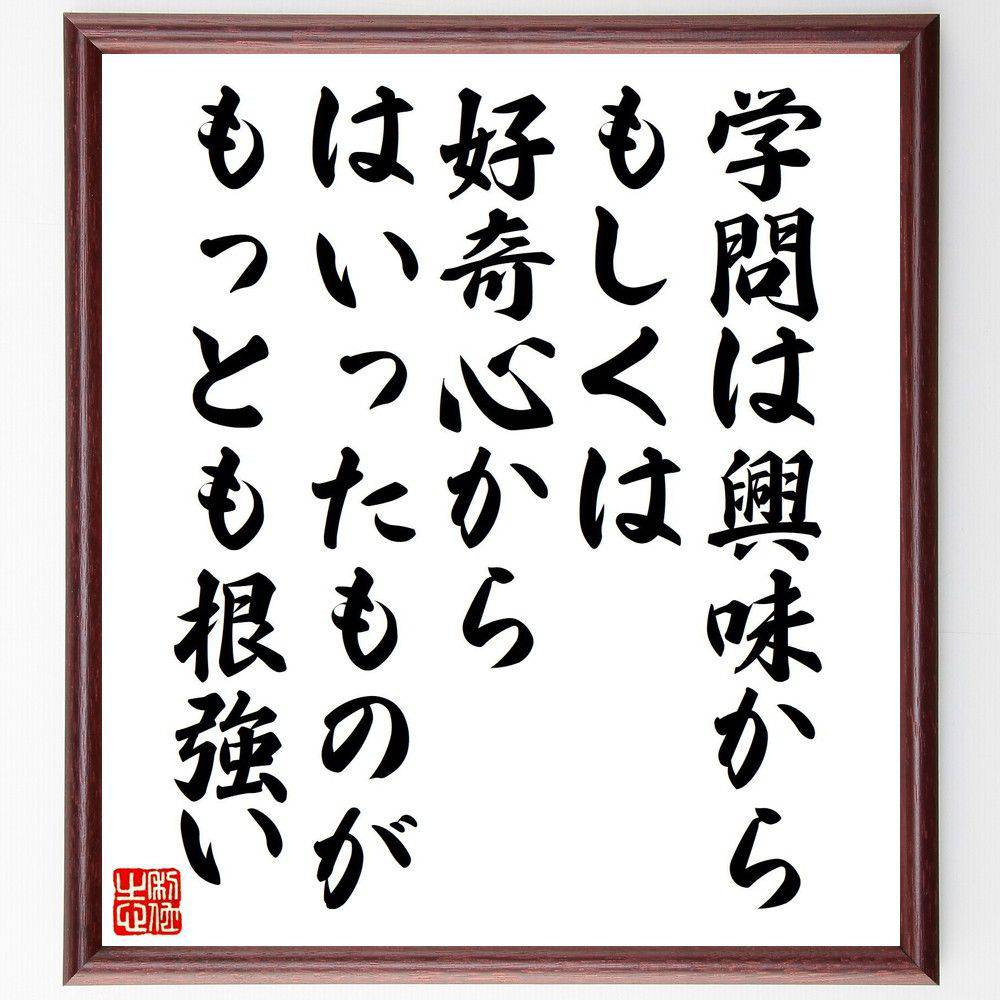 学問は興味から
もしくは
好奇心から
はいったものが
もっとも根強い